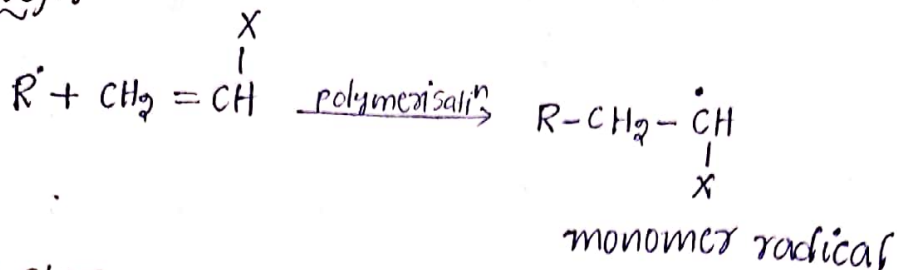 X
|
R• + CH₂ = CH polymerisatiⁿ→ R-CH₂-ĊH
|
X
monomer radical